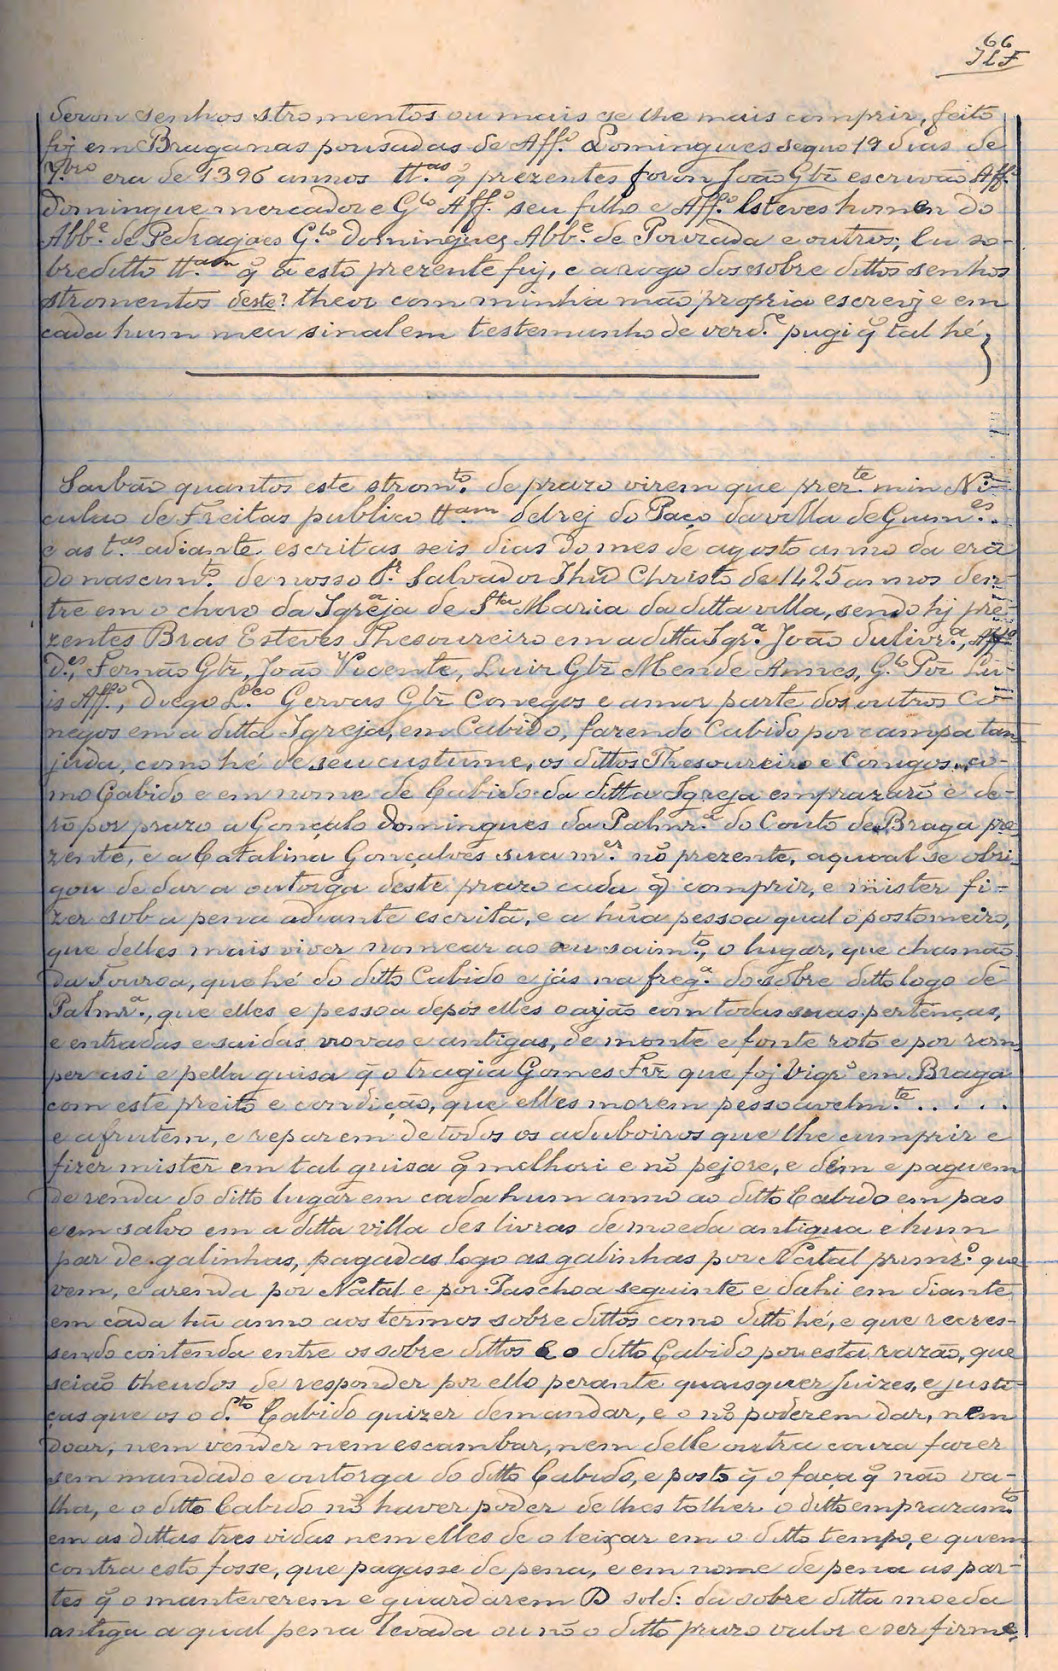 66
JLF
deron senhos stromentos ou mais se lhe mais comprir, feito
foj em Braga nas pousadas de Aff.º Domingues seguo 19 dias de
7.bro era de 1396 annos tt.as q̃ prezentes foron João Glz̃ escrivão Aff.º
domingues mercador e G.lo Aff.º seu filho e Aff.º Esteves homen do
Abb.e de Pedragaes G.lo domingues Abb.e de Pouzada e outros; Eu so-
breditto tt.am q̃ a esto prezente fuj, e a rogo dos sobre dittos senhos
stromentos deste? theor com minha mão propria escrevj e em
cada hum meu sinal em testemunho de verd.e pugi q̃ tal hé
Saibão quantos este strom.to de prazo virem que prez.te min Ni-
culao de Freitas publico tt.am delrej do Paço da villa de Guim.es..
e as t.as adiante escritas seis dias do mes de agosto anno da era
do nascim.to de nosso S.r Salvador Jhũ Christo de 1425 annos den-
tre em o choro da Igreja de S.ta Maria da ditta villa, sendo hj pre-
zentes Bras Esteves Thesoureiro em a ditta Igr.a João dulivr.a, Aff.º
D.es, Fernão Glz̃, João Vicente, Luis Glz̃ Mende Annes, G.lo Pỹz Lu-
is Aff.º, Diego L.ço Gervas Glz̃ Conegos e a mor parte dos outros Co-
negos em a ditta Igreja, em Cabido, fazendo Cabido por campa tan-
juda, como hé de seu custume, os dittos Thesoureiro e Conigos, co-
mo Cabido e em nome de Cabido da ditta Igreja emprazarõ e de-
rõ por prazo a Gonçalo domingues da Palmr.a do Couto de Braga pre-
zente, e a Catalina Gonçalves sua m.er nõ prezente, a qual se obri-
gou de dar a outorga deste prazo cada q̃ comprir, e mister fi-
zer sob a pena adiante escrita, e a hũa pessoa qual o postomeiro,
que delles mais viver nomear ao seu saim.to, o lugar, que chamão
da Touroa, que hé do ditto Cabido e jás na freg.a do sobre ditto logo de
Palmr.a, que elles e pessoa depós elles o ajão com todas suas pertenças,
e entradas e saidas novas e antigas, de monte e fonte roto e por rom-
per asi e pella guisa q̃ o tragia Gomes Frz̃ que foj Vigr.º em Braga
com este preito e condição, que elles morem pessoavelm.te . . . . .
e afrutem, e reparem de todos os aduboiros que lhe cumprir e
fizer mister em tal guisa q̃ melhori e nõ pejore, e dem e paguem
de renda do ditto lugar em cada hum anno ao ditto Cabido em pas
e em salvo em a ditta villa des livras de moeda antigua e hum
par de galinhas, pagadas logo as galinhas por Natal primr.º que
vem, e a renda por Natal e por Paschoa seguinte e dahi em diante
em cada hũ anno aos termos sobre dittos como ditto hé, e que recres-
sendo contenda entre os sobre dittos e o ditto Cabido por esta razão, que
sejão theudos de responder por ello perante quaisquer Juizes, e justi-
ças que os o d.to Cabido quizer demandar, e o nõ poderem dar, nem
doar, nem vender nem escambar, nem delle outra couza fazer
sem mandado e outorga do ditto Cabido, e posto q̃ o faça q̃ não va-
lha, e o ditto Cabido nõ haver poder de lhes tolher o ditto emprazam.to
em as dittas tres vidas nem elles de o leixar em o ditto tempo, e quem
contra esto fosse, que pagasse de pena, e em nome de pena as par-
tes q̃ o manteverem e guardarem D sold: da sobre ditta moeda
antiga a qual pena levada ou nõ o ditto prazo valer e ser firme,